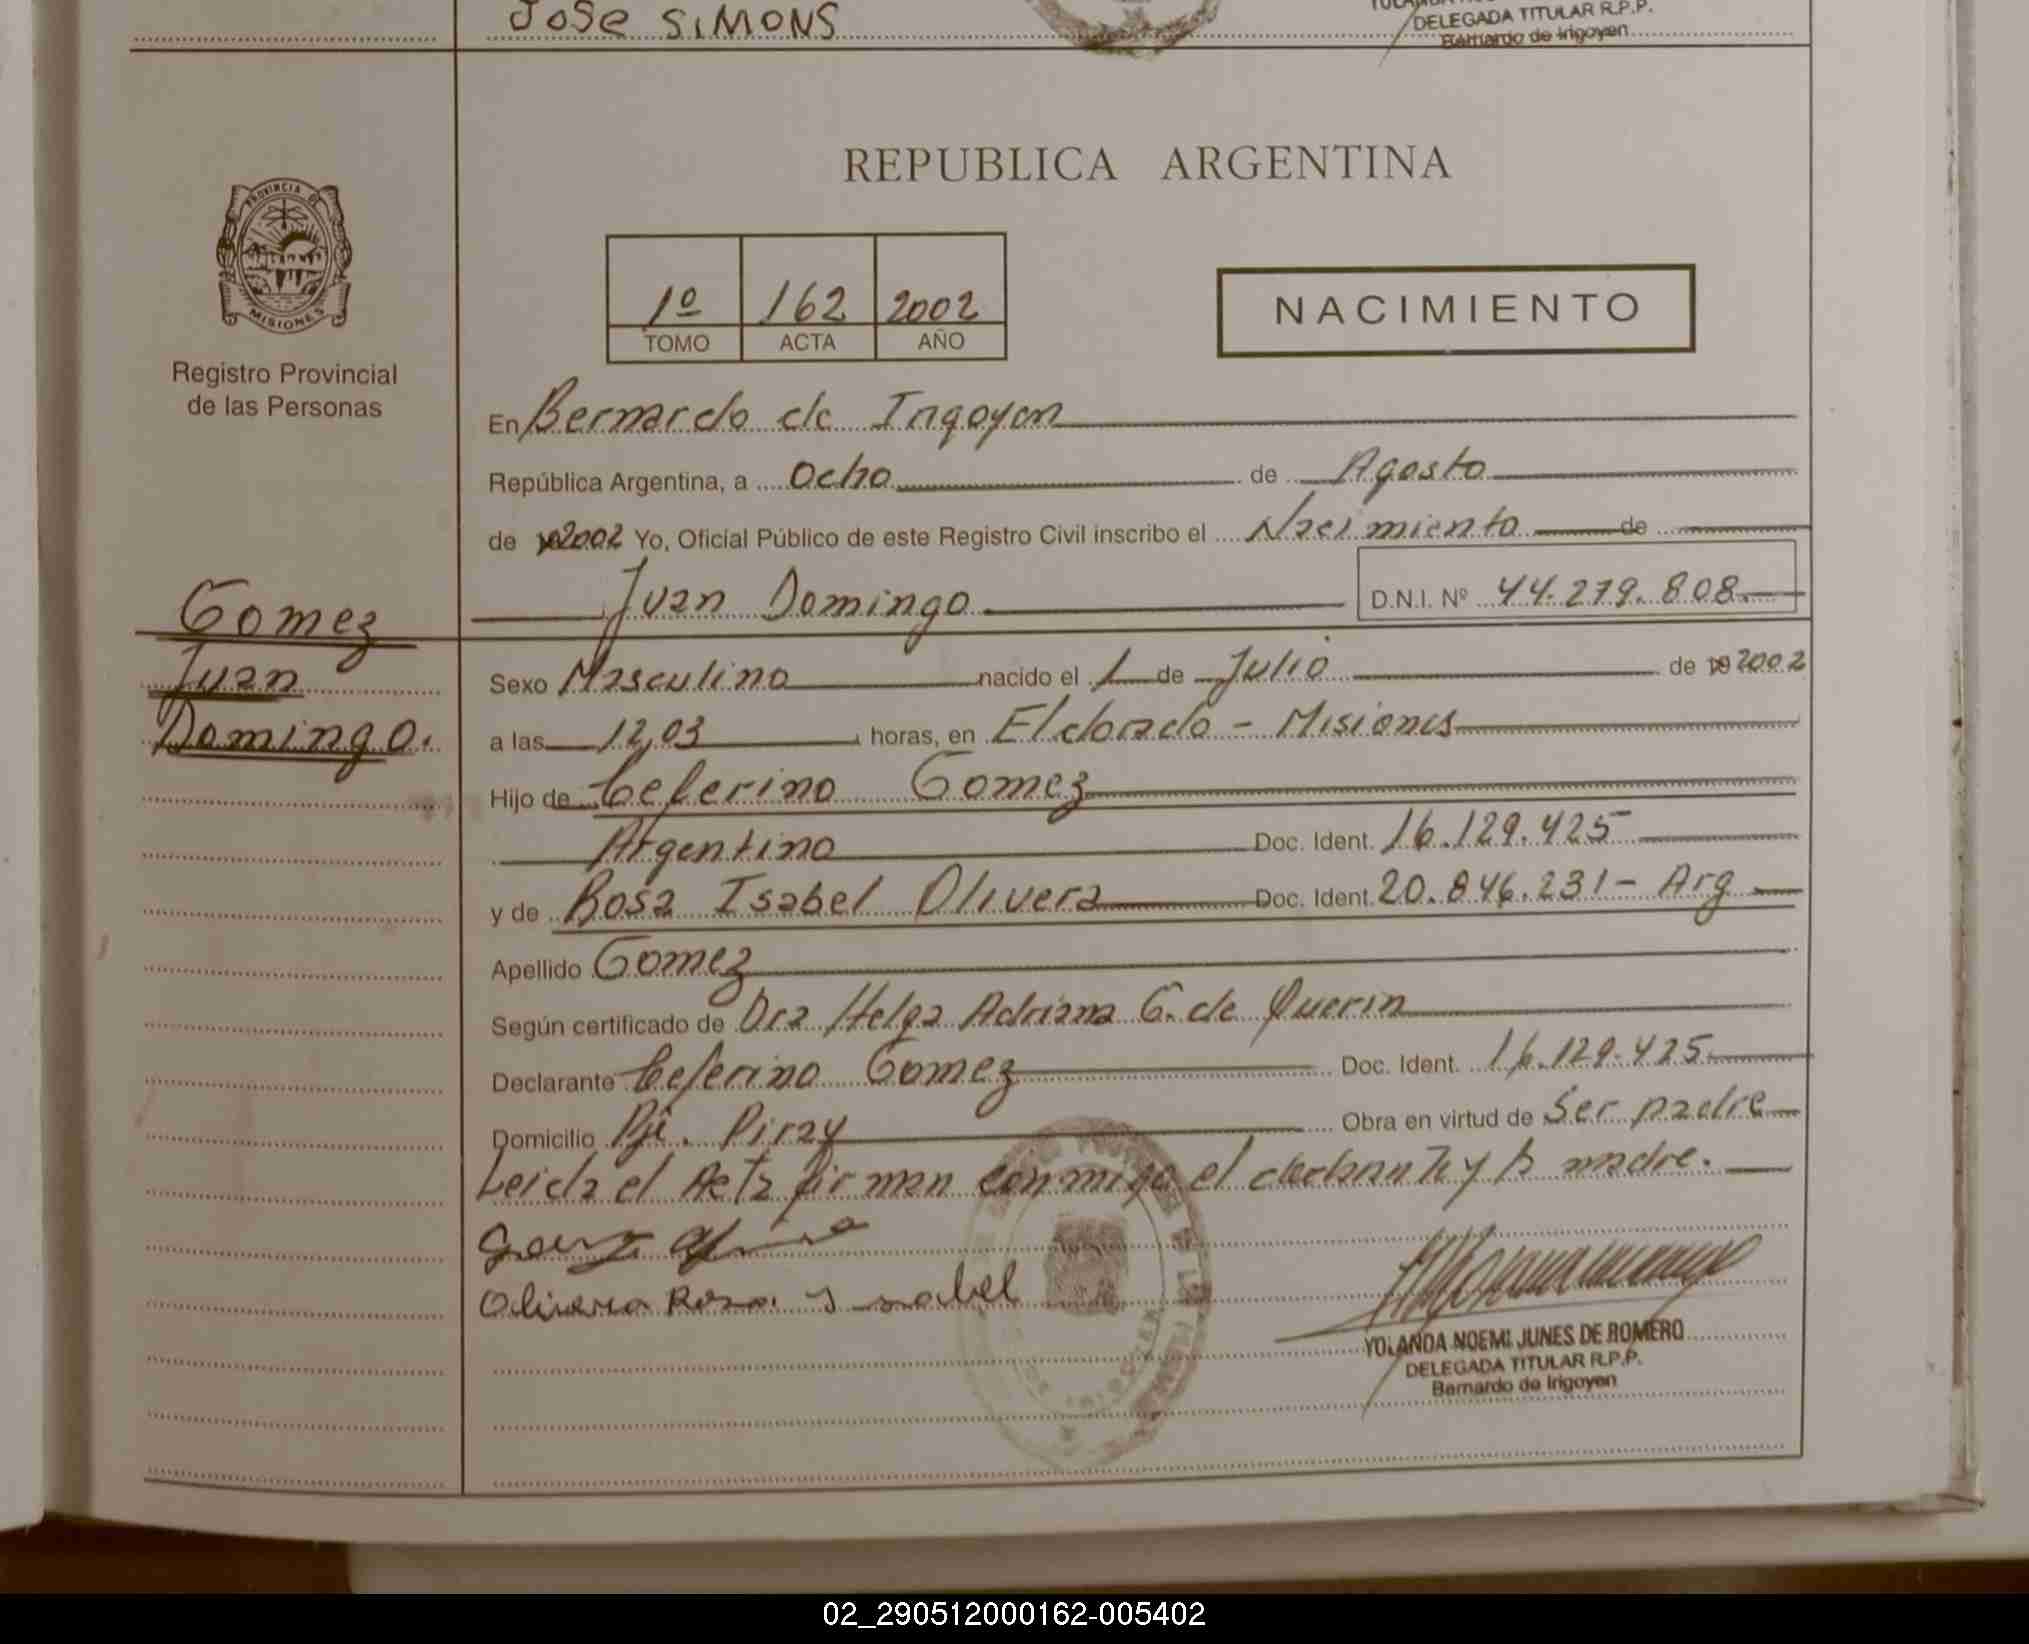 JOSE SIMONS
DELEGADA TITULAR R.P.P.
Bernardo de Irigoyen
REPUBLICA ARGENTINA
PROVINCIA DE
MISIONES
Registro Provincial
de las Personas
1º 162 2002
TOMO ACTA AÑO
NACIMIENTO
En Bernardo de Irigoyen
República Argentina, a Ocho de Agosto
de 2002 Yo, Oficial Público de este Registro Civil inscribo el Nacimiento de
Juan Domingo D.N.I. Nº 44.279.808
Gomez
Juan
Domingo.
Sexo Masculino nacido el 1 de Julio de 2002
a las 12,03 horas, en Eldorado - Misiones
Hijo de Ceferino Gomez
Argentino Doc. Ident. 16.129.425
y de Rosa Isabel Olivera Doc. Ident. 20.846.231 - Arg
Apellido Gomez
Según certificado de Dra Helga Adriana G. de Querin
Declarante Ceferino Gomez Doc. Ident. 16.129.425
Domicilio Pje. Piray Obra en virtud de Ser padre
Leida el Acta firman conmigo el declarante y la madre.
Olivera Rosa Ysabel
YOLANDA NOEMI JUNES DE ROMERO
DELEGADA TITULAR R.P.P.
Bernardo de Irigoyen
02_290512000162-005402